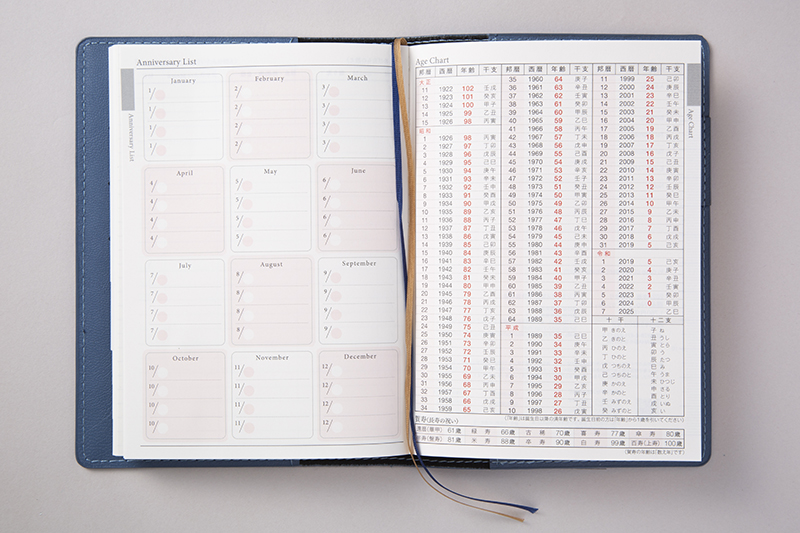 Anniversary List
Anniversary List
January
1/
1/
1/
1/
February
2/
2/
2/
2/
March
3/
3/
3/
3/
April
4/
4/
4/
4/
May
5/
5/
5/
5/
June
6/
6/
6/
6/
July
7/
7/
7/
7/
August
8/
8/
8/
8/
September
9/
9/
9/
9/
October
10/
10/
10/
10/
November
11/
11/
11/
11/
December
12/
12/
12/
12/
Age Chart
Age Chart
邦暦 西暦 年齢 干支
大正
11 1922 102 壬戌
12 1923 101 癸亥
13 1924 100 甲子
14 1925 99 乙丑
15 1926 98 丙寅
昭和
1 1926 98 丙寅
2 1927 97 丁卯
3 1928 96 戊辰
4 1929 95 己巳
5 1930 94 庚午
6 1931 93 辛未
7 1932 92 壬申
8 1933 91 癸酉
9 1934 90 甲戌
10 1935 89 乙亥
11 1936 88 丙子
12 1937 87 丁丑
13 1938 86 戊寅
14 1939 85 己卯
15 1940 84 庚辰
16 1941 83 辛巳
17 1942 82 壬午
18 1943 81 癸未
19 1944 80 甲申
20 1945 79 乙酉
21 1946 78 丙戌
22 1947 77 丁亥
23 1948 76 戊子
24 1949 75 己丑
25 1950 74 庚寅
26 1951 73 辛卯
27 1952 72 壬辰
28 1953 71 癸巳
29 1954 70 甲午
30 1955 69 乙未
31 1956 68 丙申
32 1957 67 丁酉
33 1958 66 戊戌
34 1959 65 己亥
邦暦 西暦 年齢 干支
35 1960 64 庚子
36 1961 63 辛丑
37 1962 62 壬寅
38 1963 61 癸卯
39 1964 60 甲辰
40 1965 59 乙巳
41 1966 58 丙午
42 1967 57 丁未
43 1968 56 戊申
44 1969 55 己酉
45 1970 54 庚戌
46 1971 53 辛亥
47 1972 52 壬子
48 1973 51 癸丑
49 1974 50 甲寅
50 1975 49 乙卯
51 1976 48 丙辰
52 1977 47 丁巳
53 1978 46 戊午
54 1979 45 己未
55 1980 44 庚申
56 1981 43 辛酉
57 1982 42 壬戌
58 1983 41 癸亥
59 1984 40 甲子
60 1985 39 乙丑
61 1986 38 丙寅
62 1987 37 丁卯
63 1988 36 戊辰
64 1989 35 己巳
平成
1 1989 35 己巳
2 1990 34 庚午
3 1991 33 辛未
4 1992 32 壬申
5 1993 31 癸酉
6 1994 30 甲戌
7 1995 29 乙亥
8 1996 28 丙子
9 1997 27 丁丑
10 1998 26 戊寅
邦暦 西暦 年齢 干支
11 1999 25 己卯
12 2000 24 庚辰
13 2001 23 辛巳
14 2002 22 壬午
15 2003 21 癸未
16 2004 20 甲申
17 2005 19 乙酉
18 2006 18 丙戌
19 2007 17 丁亥
20 2008 16 戊子
21 2009 15 己丑
22 2010 14 庚寅
23 2011 13 辛卯
24 2012 12 壬辰
25 2013 11 癸巳
26 2014 10 甲午
27 2015 9 乙未
28 2016 8 丙申
29 2017 7 丁酉
30 2018 6 戊戌
31 2019 5 己亥
令和
1 2019 5 己亥
2 2020 4 庚子
3 2021 3 辛丑
4 2022 2 壬寅
5 2023 1 癸卯
6 2024 0 甲辰
7 2025 乙巳
十干 十二支
甲 きのえ 子 ね
乙 きのと 丑 うし
丙 ひのえ 寅 とら
丁 ひのと 卯 う
戊 つちのえ 辰 たつ
己 つちのと 巳 み
庚 かのえ 午 うま
辛 かのと 未 ひつじ
壬 みずのえ 申 さる
癸 みずのと 酉 とり
戌 いぬ
亥 い
(「年齢」は誕生日以後の満年齢です。誕生日前の方は「年齢」から1歳を引いてください)
賀寿(長寿の祝い)
還暦(華甲) 61歳 緑寿 66歳 古稀 70歳 喜寿 77歳 傘寿 80歳
半寿(盤寿) 81歳 米寿 88歳 卒寿 90歳 白寿 99歳 百寿(上寿) 100歳
(賀寿の年齢は「数え年」です)